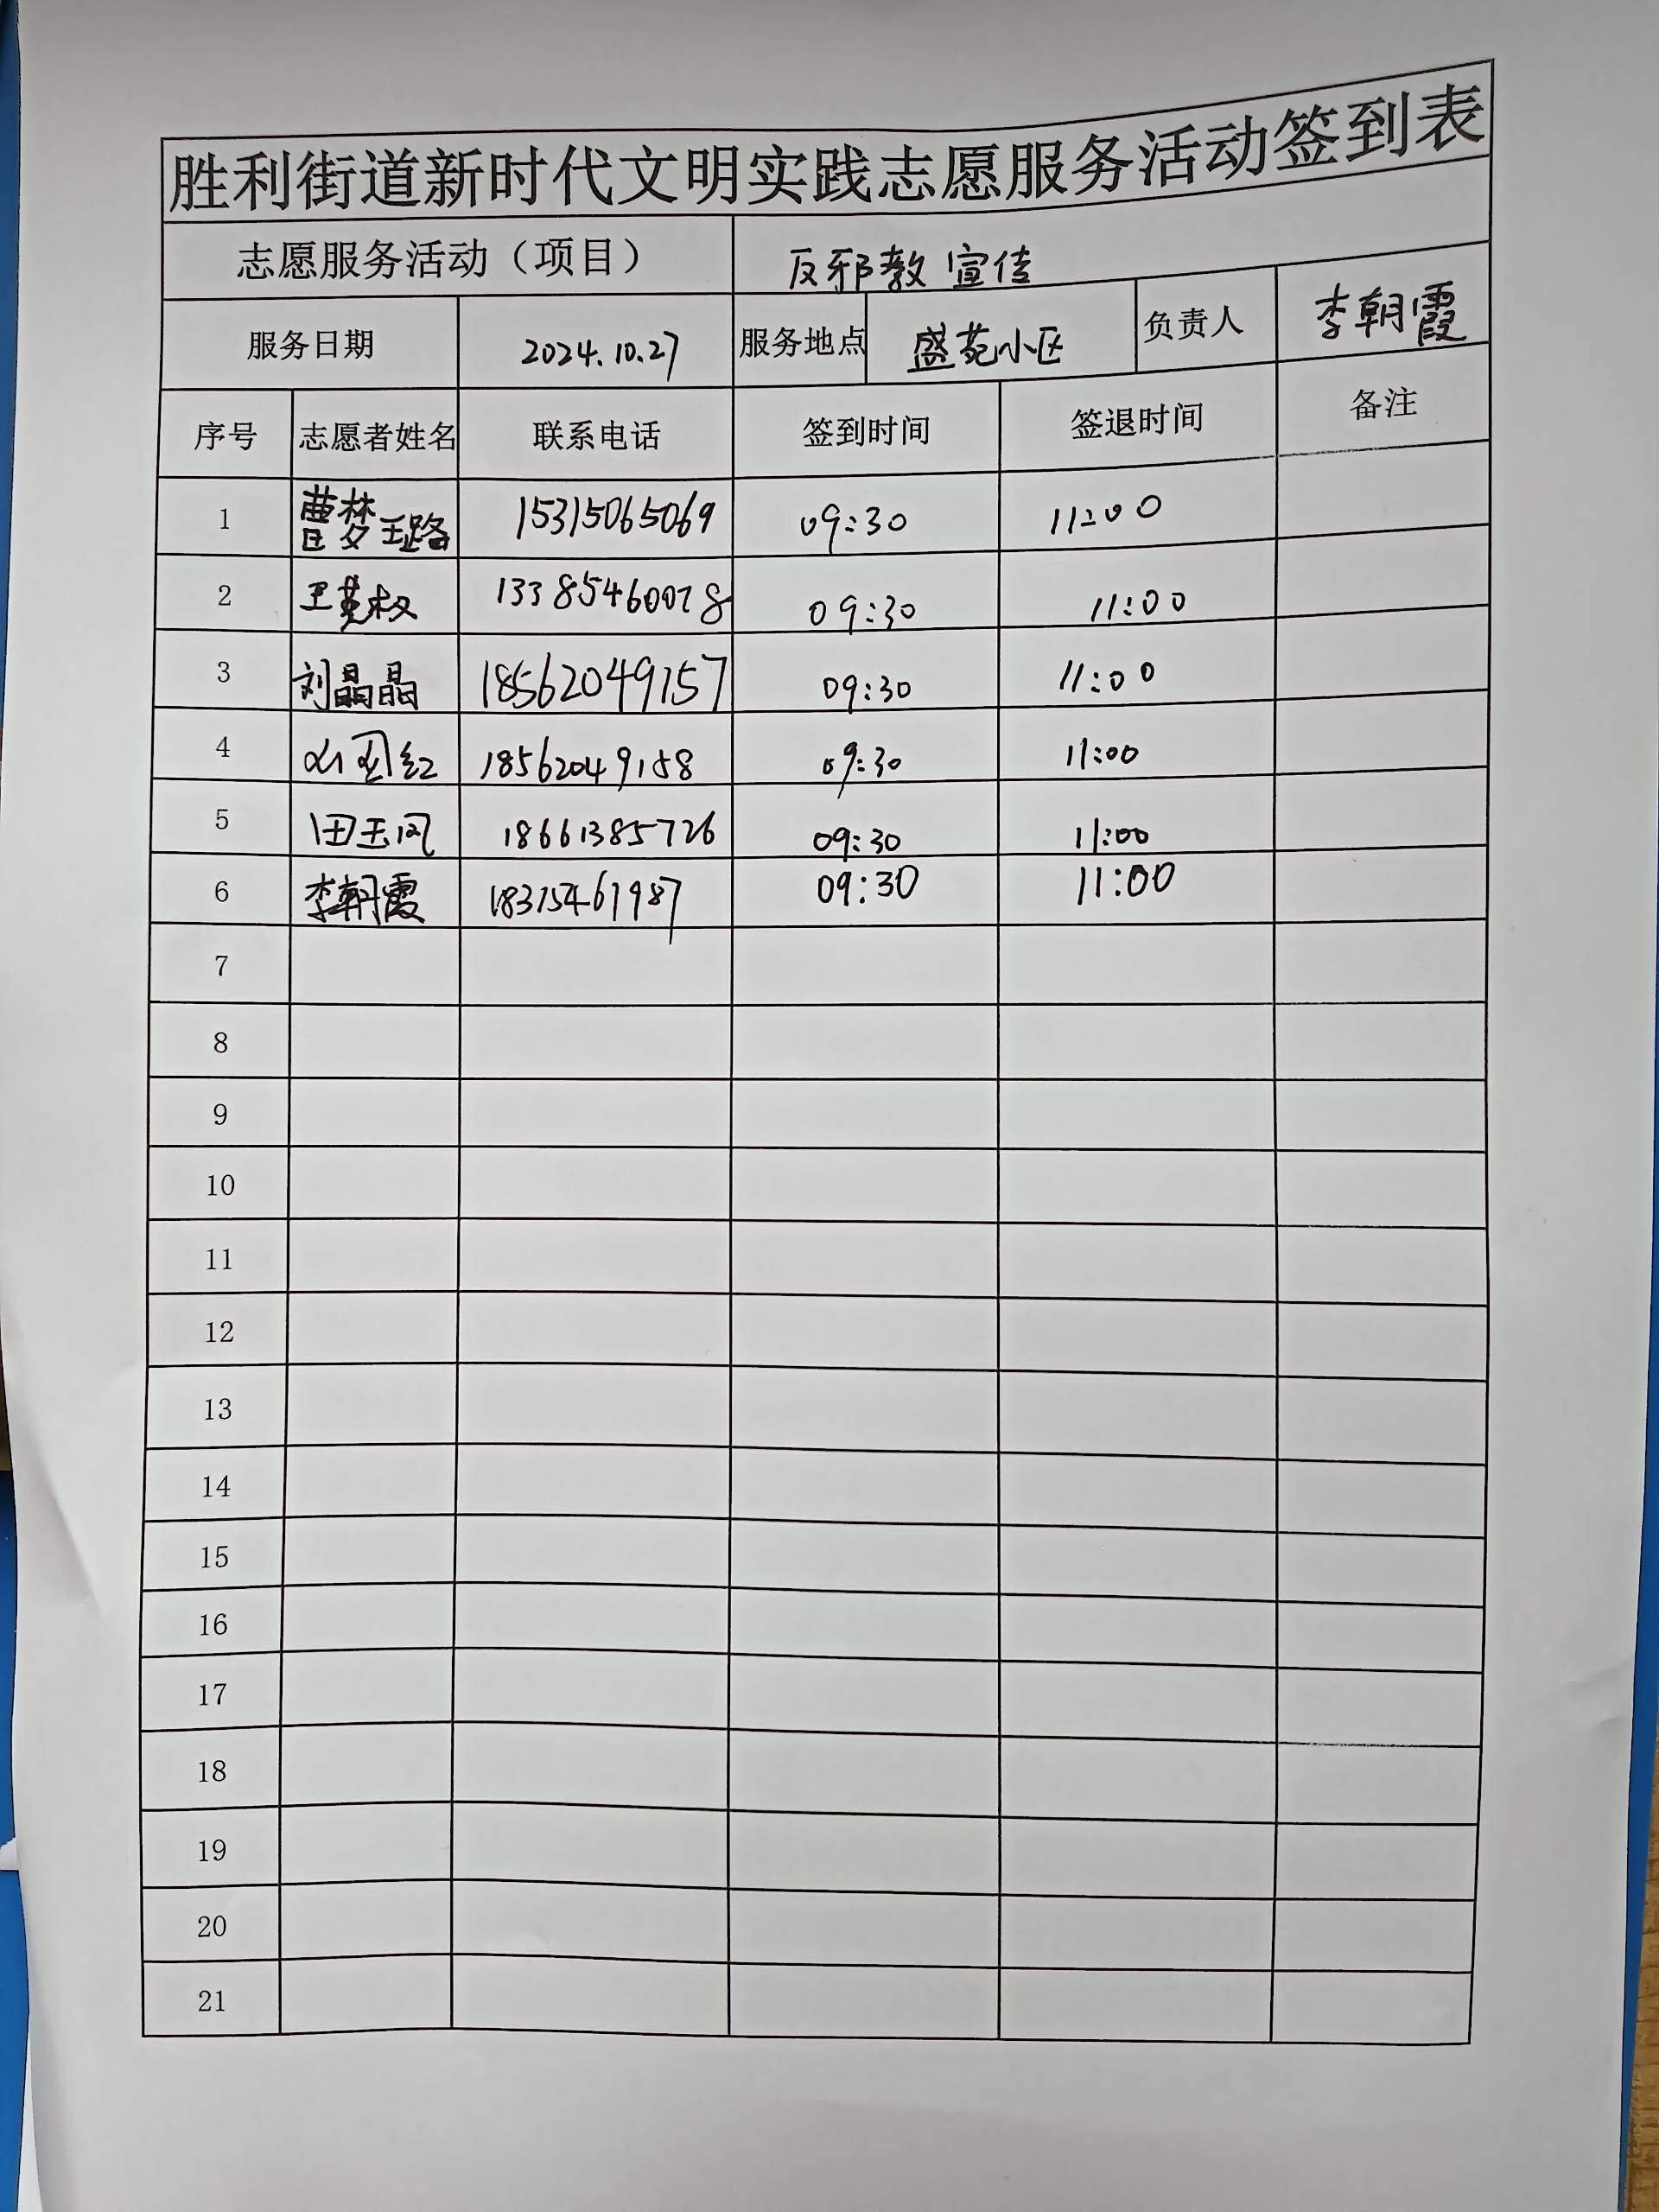 胜利街道新时代文明实践志愿服务活动签到表
志愿服务活动（项目） 反邪教宣传
服务日期 2024.10.27 服务地点 盛苑小区 负责人 李朝霞
序号 志愿者姓名 联系电话 签到时间 签退时间 备注
1 曹梦璐 15315065069 09:30 11:00
2 王 权 13385460078 09:30 11:00
3 刘晶晶 18562049157 09:30 11:00
4 红 18562049158 09:30 11:00
5 田玉凤 18661385726 09:30 11:00
6 李朝霞 18315461987 09:30 11:00
7
8
9
10
11
12
13
14
15
16
17
18
19
20
21